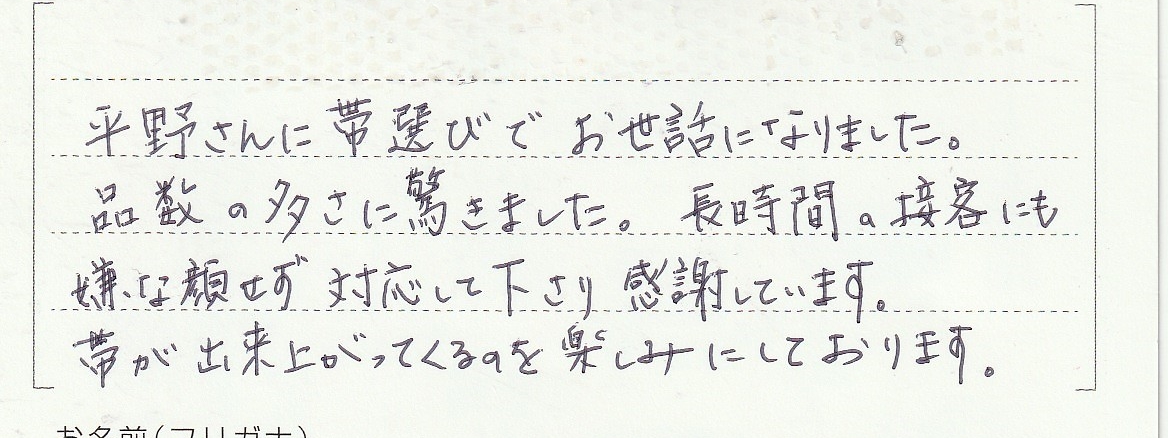 平野さんに帯選びで お世話になりました。
品数の多さに驚きました。長時間の接客にも
嫌な顔せず 対応して下さり 感謝しています。
帯が出来上がってくるのを楽しみにしております。
お名前(フリガナ)